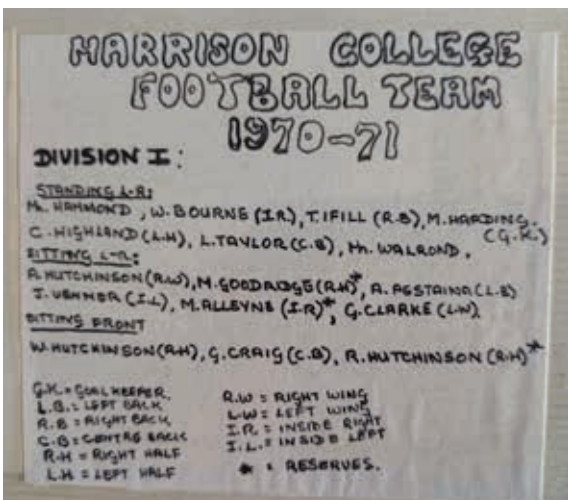 HARRISON COLLEGE
FOOTBALL TEAM
1970-71
DIVISION I:
STANDING L-R:
Mr. HAMMOND, W. BOURNE (I.R), T. IFILL (R.B), M. HARDING.
C. HIGHLAND (L.H), L. TAYLOR (C.B), Mr. WALROND. (G.K.)
SITTING L-R:
A. HUTCHINSON (R.W), M. GOODRIDGE (R.H)*, A. (L.B)
(I.L), M. ALLEYNE (I.R)*, G. CLARKE (L.W)
SITTING FRONT
W. HUTCHINSON (R.H), G. CRAIG (C.B), R. HUTCHINSON (R.H)*
G.K = GOALKEEPER.
L.B. = LEFT BACK
R.B = RIGHT BACK
C.B = CENTRE BACK
R.H = RIGHT HALF
L.H = LEFT HALF
R.W = RIGHT WING
L.W = LEFT WING
I.R. = INSIDE RIGHT
I.L. = INSIDE LEFT
* = RESERVES.